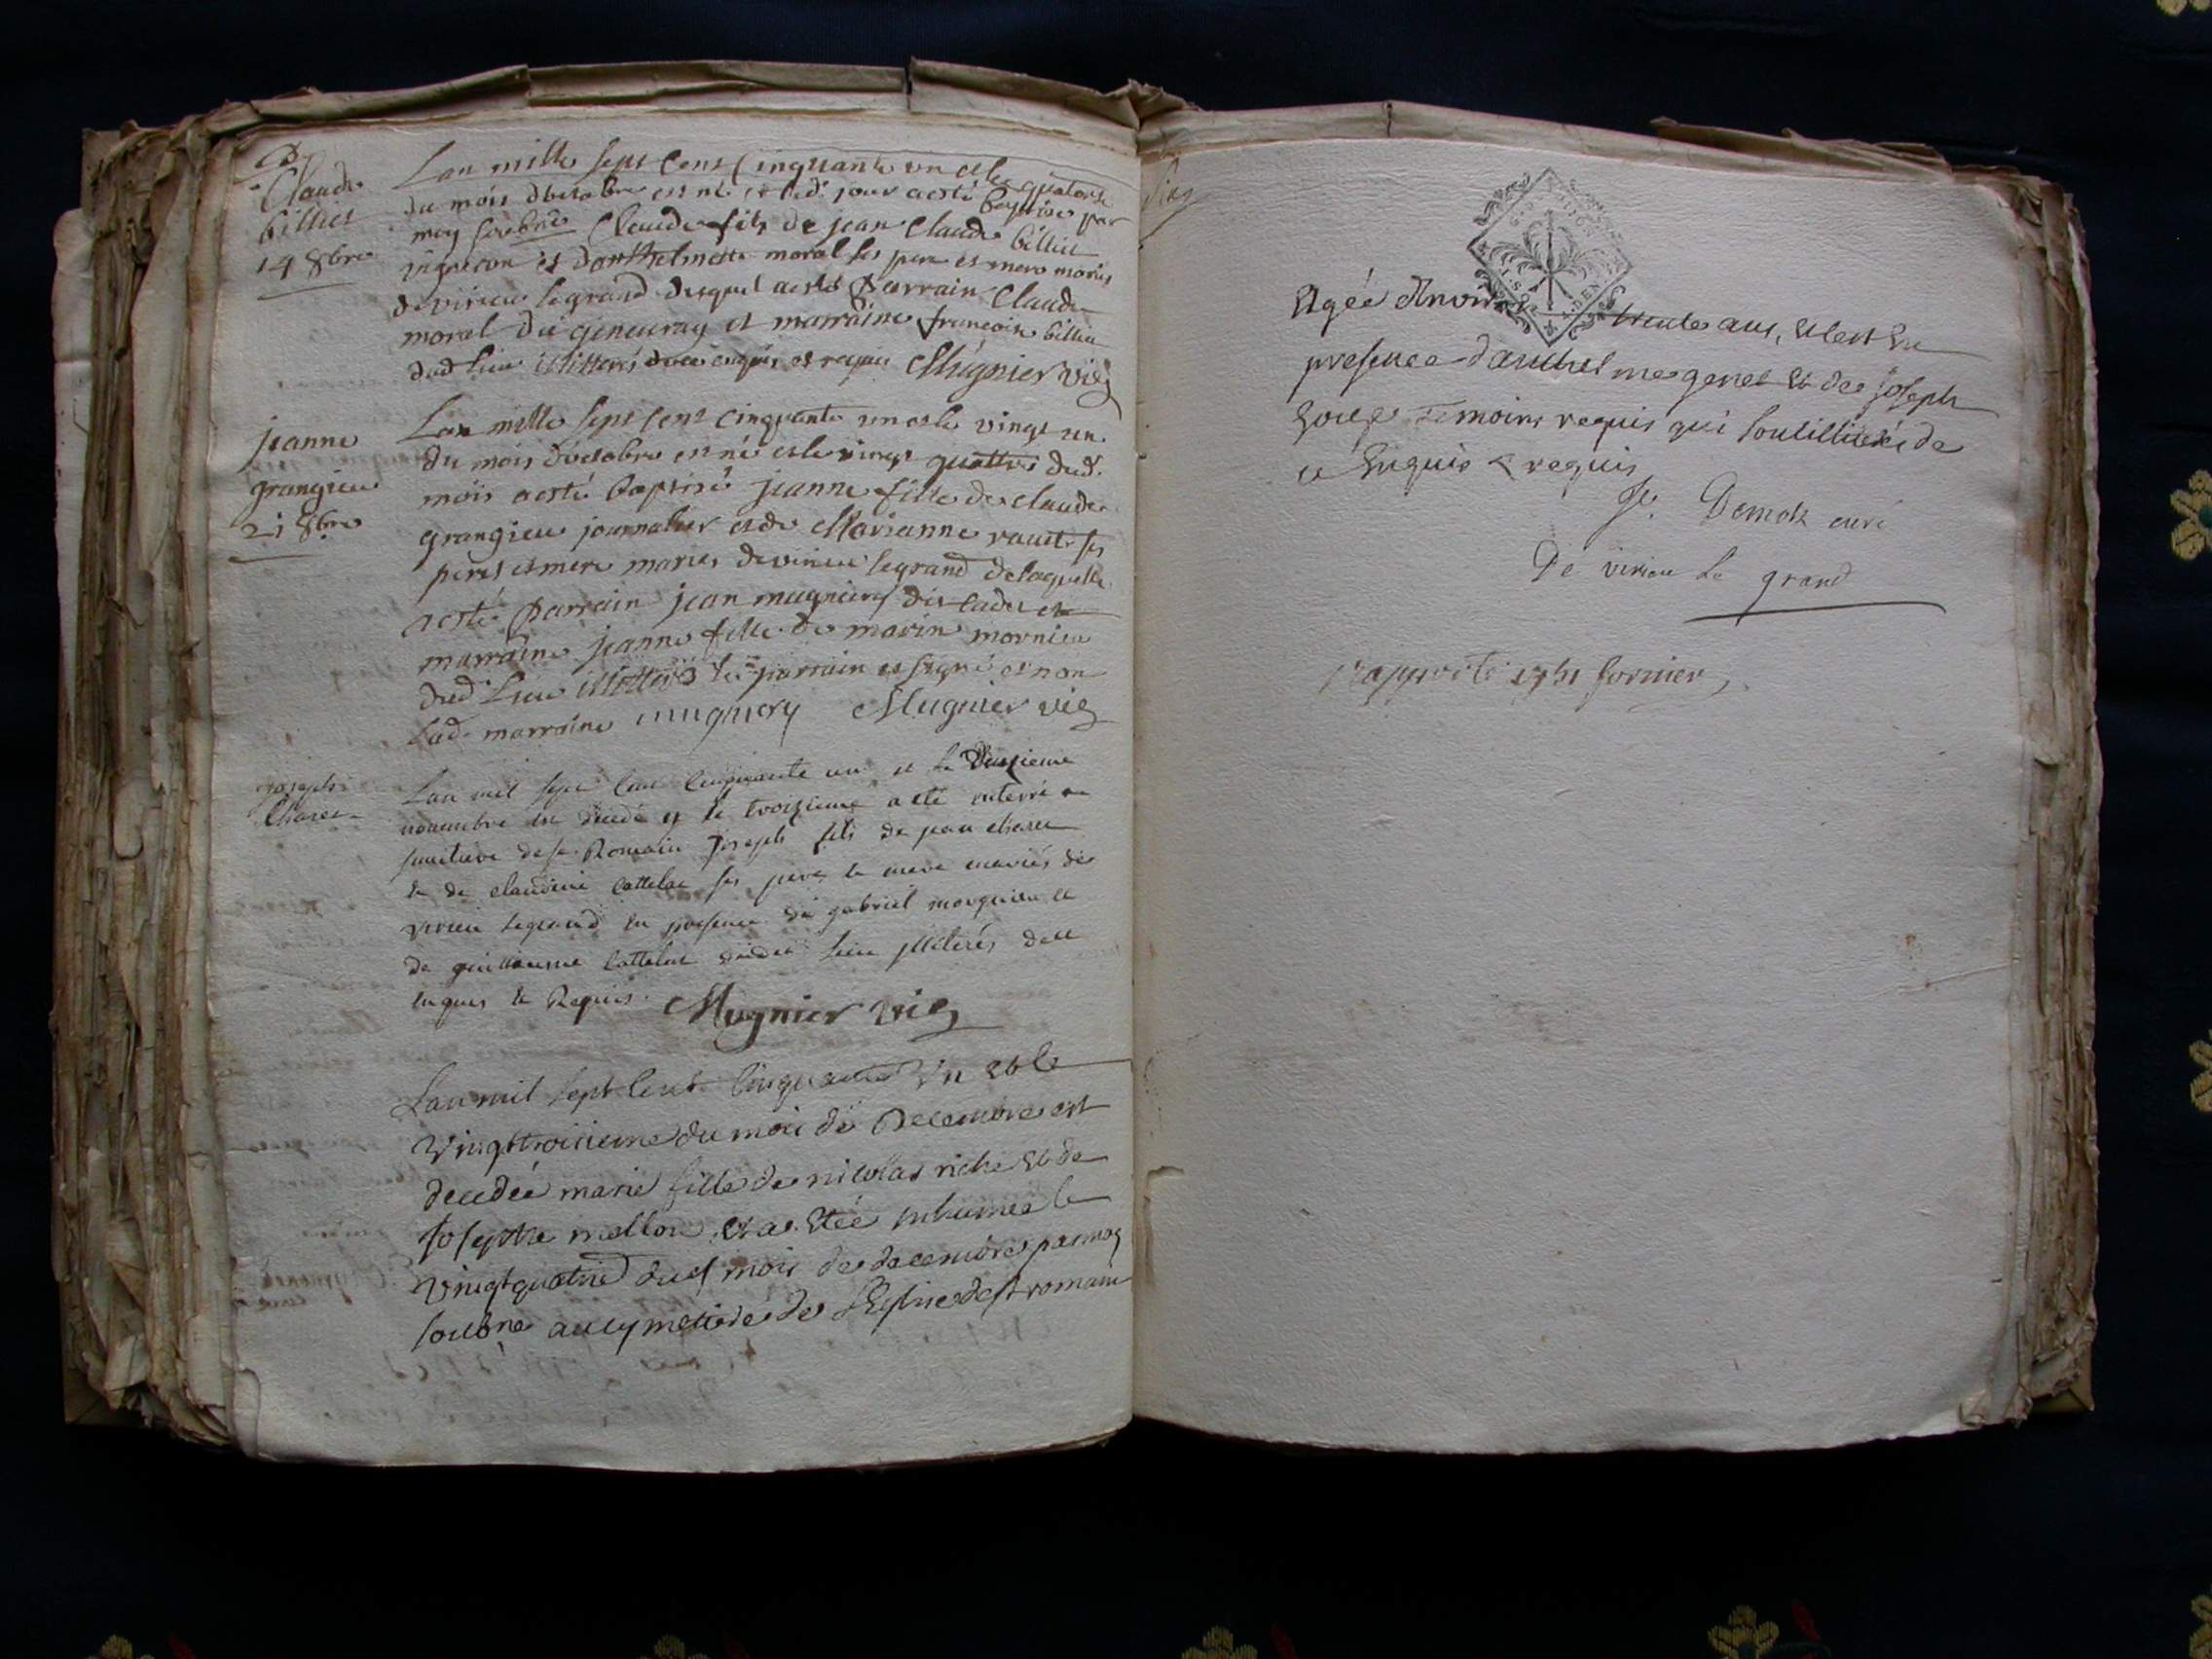 B
Claude
billiet
14 8bre
Lan mille sept cens cinquante un et le quatorse
du mois doctobre est né et led. jour a esté baptisé par
moy soubné Claude fils de jean Claude billiet
vigneron et danthelmette moral ses pere et mere mariés
de virieu legrand duquel a esté parrain Claude
moral du geneuray et marraine francoise billiet
dud lieu illitterés de ce enquis et requis Mugnier vic
jeanne
grangieu
21 8bre
Lan mille sept cens cinquante un et le vingt un
du mois doctobre est né et le vingt quattre dud.
mois a esté baptisé jeanne fille de claude
grangieu journalier et de Marianne ses
peres et mere maries de virieu legrand de laquelle
a esté parrain jean mugniery dit et
marraine jeanne fille de marin mornieu
dud. lieu le parrain et signé et non
lad. marraine mugniery Mugnier vic
joseph
Charc
Lan mil sept cens cinquante un et le deuxieme
novembre est decedé et le troizieme a eté enterré au
simitiere de st. Romain Joseph fils de jean
et de claudine Cattelas ses pere et mere mariés de
virieu legrand en presence de gabriel et
de guillaume Cattelas dudit lieu illiterés de ce
enquis et Requis. Mugnier vic
Lan mil sept cent cinquante un et le
vingt troisieme du mois de decembre est
decedée marie fille de nicolas riche et de
Josephte mellon et a etée inhumée le
vingt quatrie dud mois de decembre par moy
soubné au cymetiere de l'Eglise de st romain
G. D. DIJON
Agée denviron trente ans, et est en
presence danthelme genet et de joseph
temoins requis qui sont illiterés de
ce enquis et requis
Demott curé
De virieu le grand
rapporté 1751 fornier